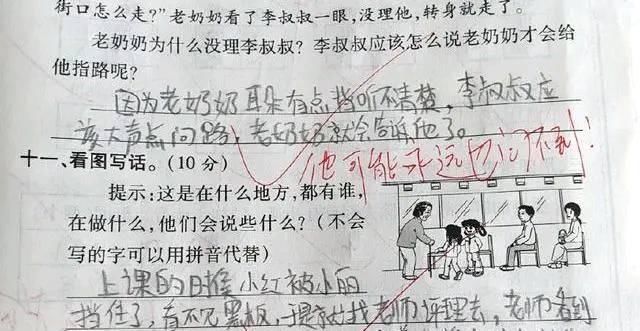 街口怎么走?”老奶奶看了李叔叔一眼,没理他,转身就走了。
老奶奶为什么没理李叔叔?李叔叔应该怎么说老奶奶才会给
他指路呢?
因为老奶奶耳朵有点 听不清楚,李叔叔应
该大声点问路,老奶奶就会告诉他了。
他可能永远也问不到!
十一、看图写话。(10分)
提示:这是在什么地方,都有谁,
在做什么,他们会说些什么?(不会
写的字可以用拼音代替)
上课的时候 小红被小丽
挡住了,看不见黑板,于是 找老师评理去,老师看到